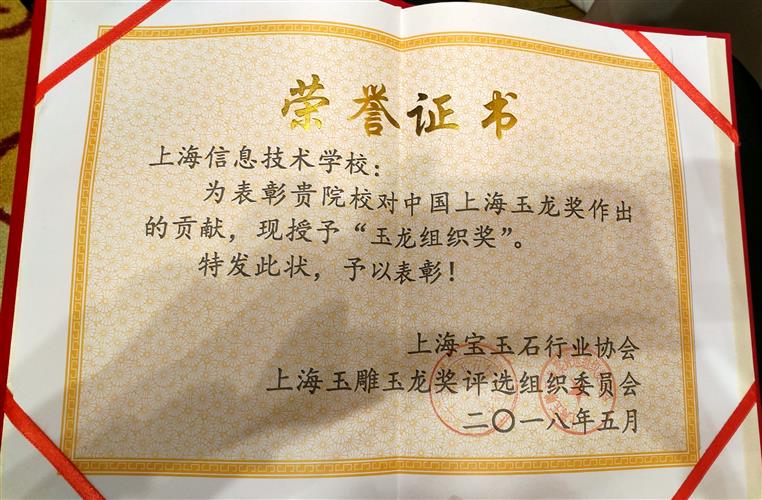 荣誉证书
上海信息技术学校：
为表彰贵院校对中国上海玉龙奖作出
的贡献，现授予“玉龙组织奖”。
特发此状，予以表彰！
上海宝玉石行业协会
上海玉雕玉龙奖评选组织委员会
二〇一八年五月